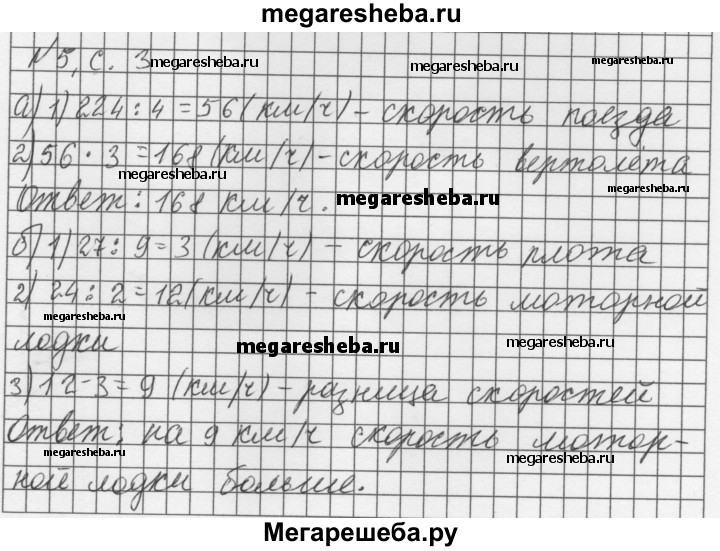 megaresheba.ru
№5, с. 3 megaresheba.ru megaresheba.ru megaresheba.ru
а) 1) 224 : 4 = 56 (км/ч) – скорость поезда
2) 56 · 3 = 168 (км/ч) – скорость вертолёта
megaresheba.ru megaresheba.ru
Ответ: 168 км/ч. megaresheba.ru
б) 1) 27 : 9 = 3 (км/ч) – скорость плота
2) 24 : 2 = 12 (км/ч) – скорость моторной
megaresheba.ru megaresheba.ru
лодки megaresheba.ru megaresheba.ru
3) 12 – 3 = 9 (км/ч) – разница скоростей
Ответ: на 9 км/ч скорость мотор-
megaresheba.ru megaresheba.ru
ной лодки больше.
Мегарешеба.ру